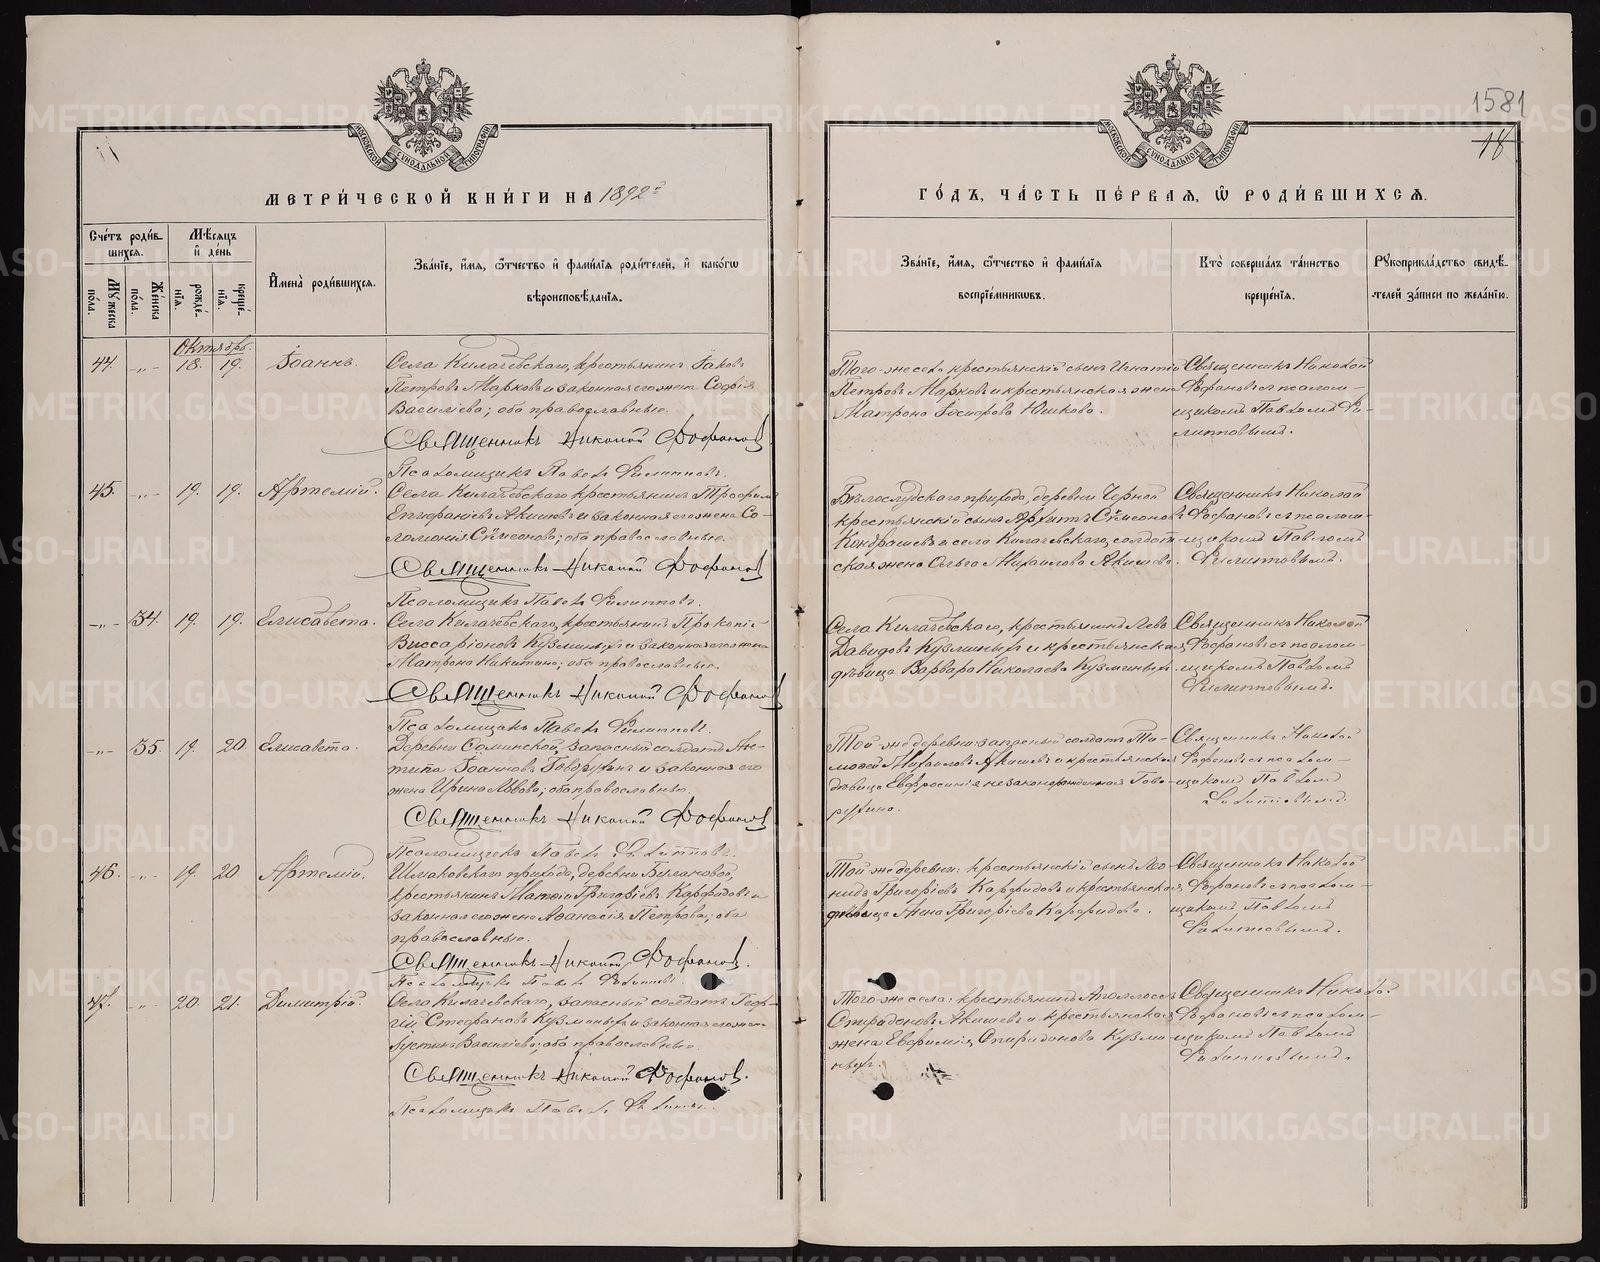 1581
18
МОСКОВСКОЙ СѴНОДАЛЬНОЙ ТИПОГРАФІИ
МОСКОВСКОЙ СѴНОДАЛЬНОЙ ТИПОГРАФІИ
МЕТРИ́ЧЕСКОЙ КНИ́ГИ НА 1892й
ГО́ДЪ, ЧА́СТЬ ПЕ́РВАЯ, Ѡ РОДИ́ВШИХСѦ.
Сче́тъ роди́в-
шихсѧ.
Мѣ́сѧцъ
и҆ де́нь
Мꙋ́жеска
по́ла.
Же́нска
по́ла.
рожде́-
нїѧ.
креще́-
нїѧ.
И҆мена̀ роди́вшихсѧ.
Зва́нїе, и҆́мѧ, ѻ҆́тчество и҆ фами́лїѧ роди́телей, и҆ како́гѡ
вѣроисповѣ́данїѧ.
Зва́нїе, и҆́мѧ, ѻ҆́тчество и҆ фами́лїѧ
воспрїе́мникѡвъ.
Кто̀ соверша́лъ та́инство
креще́нїѧ.
Рꙋкоприкла́дство свидѣ́-
телей за́писи по жела́нїю.
Октябрь.
44. -„- 18. 19. Іоаннъ.
Села Килачевскаго, крестьянинъ Іаковъ
Петровъ Марковъ и законная его жена Софія
Васильева; оба православные.
Священникъ Николай Фофановъ
Псаломщикъ Павелъ Филипповъ.
Того-же села крестьянскій сынъ Игнатій
Петровъ Марковъ и крестьянская жена
Матрона Іосифова Юшкова.
Священникъ Николай
Фофановъ съ псалом-
щикомъ Павломъ Фи-
липповымъ.
45. -„- 19. 19. Артемій.
Села Килачевскаго крестьянинъ Трофимъ
Епифаніевъ Акишевъ и законная его жена Со-
ломонія Сѵмеонова; оба православные.
Священникъ Николай Фофановъ
Псаломщикъ Павелъ Филипповъ.
Бѣлослудскаго прихода, деревни Черной
крестьянскій сынъ Архипъ Сѵмеоновъ
Кондрашевъ и села Килачевскаго, солдат-
ская жена Ольга Михаилова Акишева.
Священникъ Николай
Фофановъ съ псалом-
щикомъ Павломъ
Филипповымъ.
-„- 34. 19. 19. Елисавета.
Села Килачевскаго, крестьянинъ Прокопій
Виссаріоновъ Кузминыхъ и законная его жена
Матрона Никитина; оба православные.
Священникъ Николай Фофановъ
Псаломщикъ Павелъ Филипповъ.
Села Килачевскаго, крестьянинъ Левъ
Давидовъ Кузминыхъ и крестьянская
дѣвица Варвара Николаева Кузминыхъ.
Священникъ Николай
Фофановъ съ псалом-
щикомъ Павломъ
Филипповымъ.
-„- 35. 19. 20. Елисавета.
Деревни Соминской, запасный солдатъ Ан-
типа Іоанновъ Говорухинъ и законная его
жена Ирина Львова; оба православные.
Священникъ Николай Фофановъ
Псаломщикъ Павелъ Филипповъ.
Той-же деревни: запасный солдатъ Ти-
мофей Михаиловъ Акишевъ и крестьянская
дѣвица Евфросинія незаконнорожденная Гово-
рухина.
Священникъ Николай
Фофановъ съ псалом-
щикомъ Павломъ
Филипповымъ.
46. -„- 19. 20. Артемій.
Шмаковскаго прихода, деревни Булановой,
крестьянинъ Матвій Григоріевъ Карфидовъ и
законная его жена Аѳанасія Петрова; оба
православные.
Священникъ Николай Фофановъ.
Псаломщикъ Павелъ Филипповъ
Той же деревни: крестьянскій сынъ Лео-
нидъ Григоріевъ Карфидовъ и крестьянская
дѣвица Анна Григоріева Карфидова.
Священникъ Николай
Фофановъ съ псалом-
щикомъ Павломъ
Филипповымъ.
47. -„- 20. 21. Димитрій.
Села Килачевскаго, запасный солдатъ Геор-
гій Стефановъ Кузминыхъ и законная его жена
Іустина Васильева; оба православные.
Священникъ Николай Фофановъ.
Псаломщикъ Павелъ Филипповъ.
Того-же села: крестьянинъ Аполлосъ
Спиридоновъ Акишевъ и крестьянская
жена Евфимія Спиридонова Кузми-
ныхъ.
Священникъ Николай
Фофановъ съ псалом-
щикомъ Павломъ
Филипповымъ.
METRIKI.GASO-URAL.RU